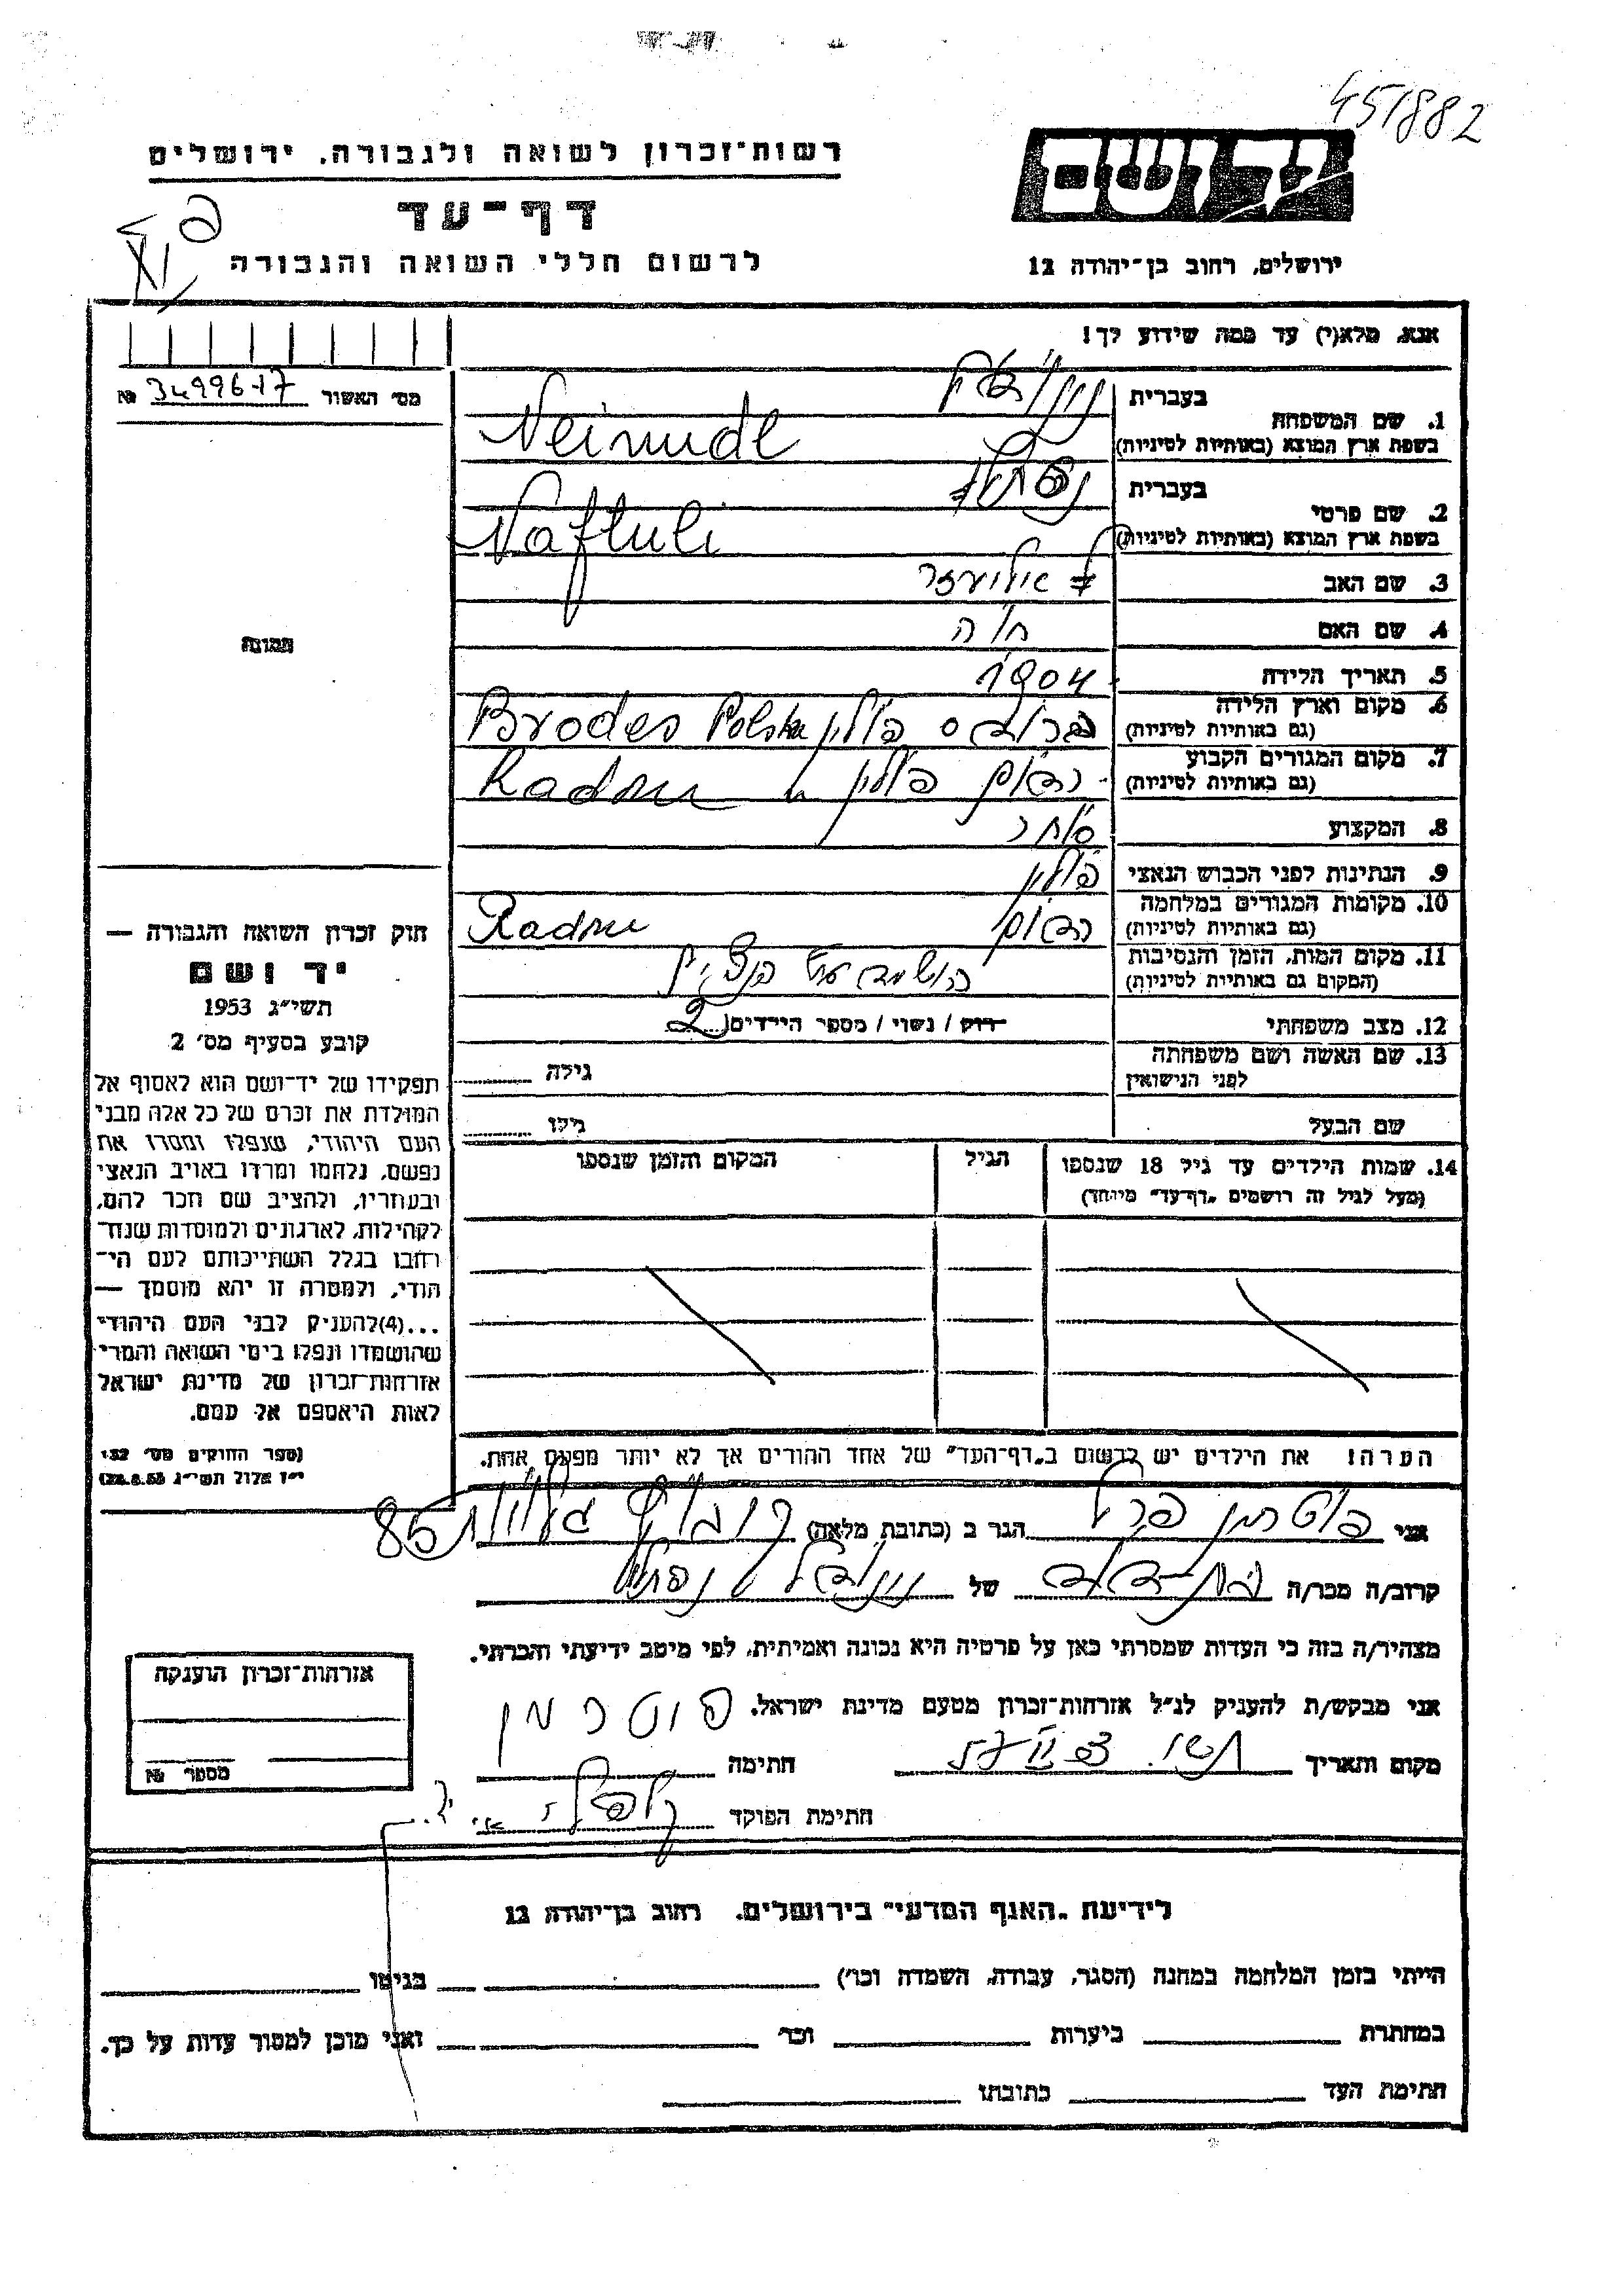 451882
יד ושם
רשות־זכרון לשואה ולגבורה, ירושלים
דף־עד
לרשום חללי השואה והגבורה
ירושלים, רחוב בן־יהודה 12
אנא, מלא(י) עד כמה שידוע לך!
מס׳ האשור 3499617 №
1. שם המשפחה
בעברית
בשפת ארץ המוצא (באותיות לטיניות) Neinudel
2. שם פרטי
בעברית נפתלי
בשפת ארץ המוצא (באותיות לטיניות) Naftuli
3. שם האב אליעזר
4. שם האם חיה
5. תאריך הלידה 1904
6. מקום וארץ הלידה
(גם באותיות לטיניות) פולין Brodes Polska
7. מקום המגורים הקבוע
(גם באותיות לטיניות) ראדום פולין
8. המקצוע סוחר
9. הנתינות לפני הכבוש הנאצי פולין
10. מקומות המגורים במלחמה
(גם באותיות לטיניות)
11. מקום המות, הזמן והנסיבות
(המקום גם באותיות לטיניות) הושמד
12. מצב משפחתי רוק / נשוי / מספר הילדים 2
13. שם האשה ושם משפחתה
לפני הנישואין
גילה
שם הבעל
גילו
14. שמות הילדים עד גיל 18 שנספו
(מעל לגיל זה רושמים „דף־עד" מיוחד)
הגיל
המקום והזמן שנספו
הערה! את הילדים יש לרשום ב„דף־העד" של אחד ההורים אך לא יותר מפעם אחת.
תמונה
חוק זכרון השואה והגבורה —
יד ושם
תשי״ג 1953
קובע בסעיף מס׳ 2
תפקידו של יד־ושם הוא לאסוף אל
המולדת את זכרם של כל אלה מבני
העם היהודי, שנפלו ומסרו את
נפשם, נלחמו ומרדו באויב הנאצי
ובעוזריו, ולהציב שם וזכר להם,
לקהילות, לארגונים ולמוסדות שנח־
רחבו בגלל השתייכותם לעם הי־
הודי, ולמטרה זו יהא מוסמך —
...(4)להעניק לבני העם היהודי
שהושמדו ונפלו בימי השואה והמרי
אזרחות־זכרון של מדינת ישראל
לאות היאספם אל עמם.
(ספר החוקים מס׳ 132
י״ז אלול תשי״ג 28.8.53)
אני פוטרמן פרל הגר ב (כתובת מלאה) 85
קרוב/ה מכר/ה של נפתלי
מצהיר/ה בזה כי העדות שמסרתי כאן על פרטיה היא נכונה ואמיתית, לפי מיטב ידיעתי והכרתי.
אני מבקש/ת להעניק לנ״ל אזרחות־זכרון מטעם מדינת ישראל.
מקום ותאריך
חתימה פוטרמן
חתימת הפוקד
אזרחות־זכרון הוענקה
מספר №
לידיעת „האגף המדעי" בירושלים, רחוב בן־יהודה 12
הייתי בזמן המלחמה במחנה (הסגר, עבודה, השמדה וכו׳) בגיטו
במחתרת ביערות וכו׳ ואני מוכן למסור עדות על כך.
חתימת העד כתובתו